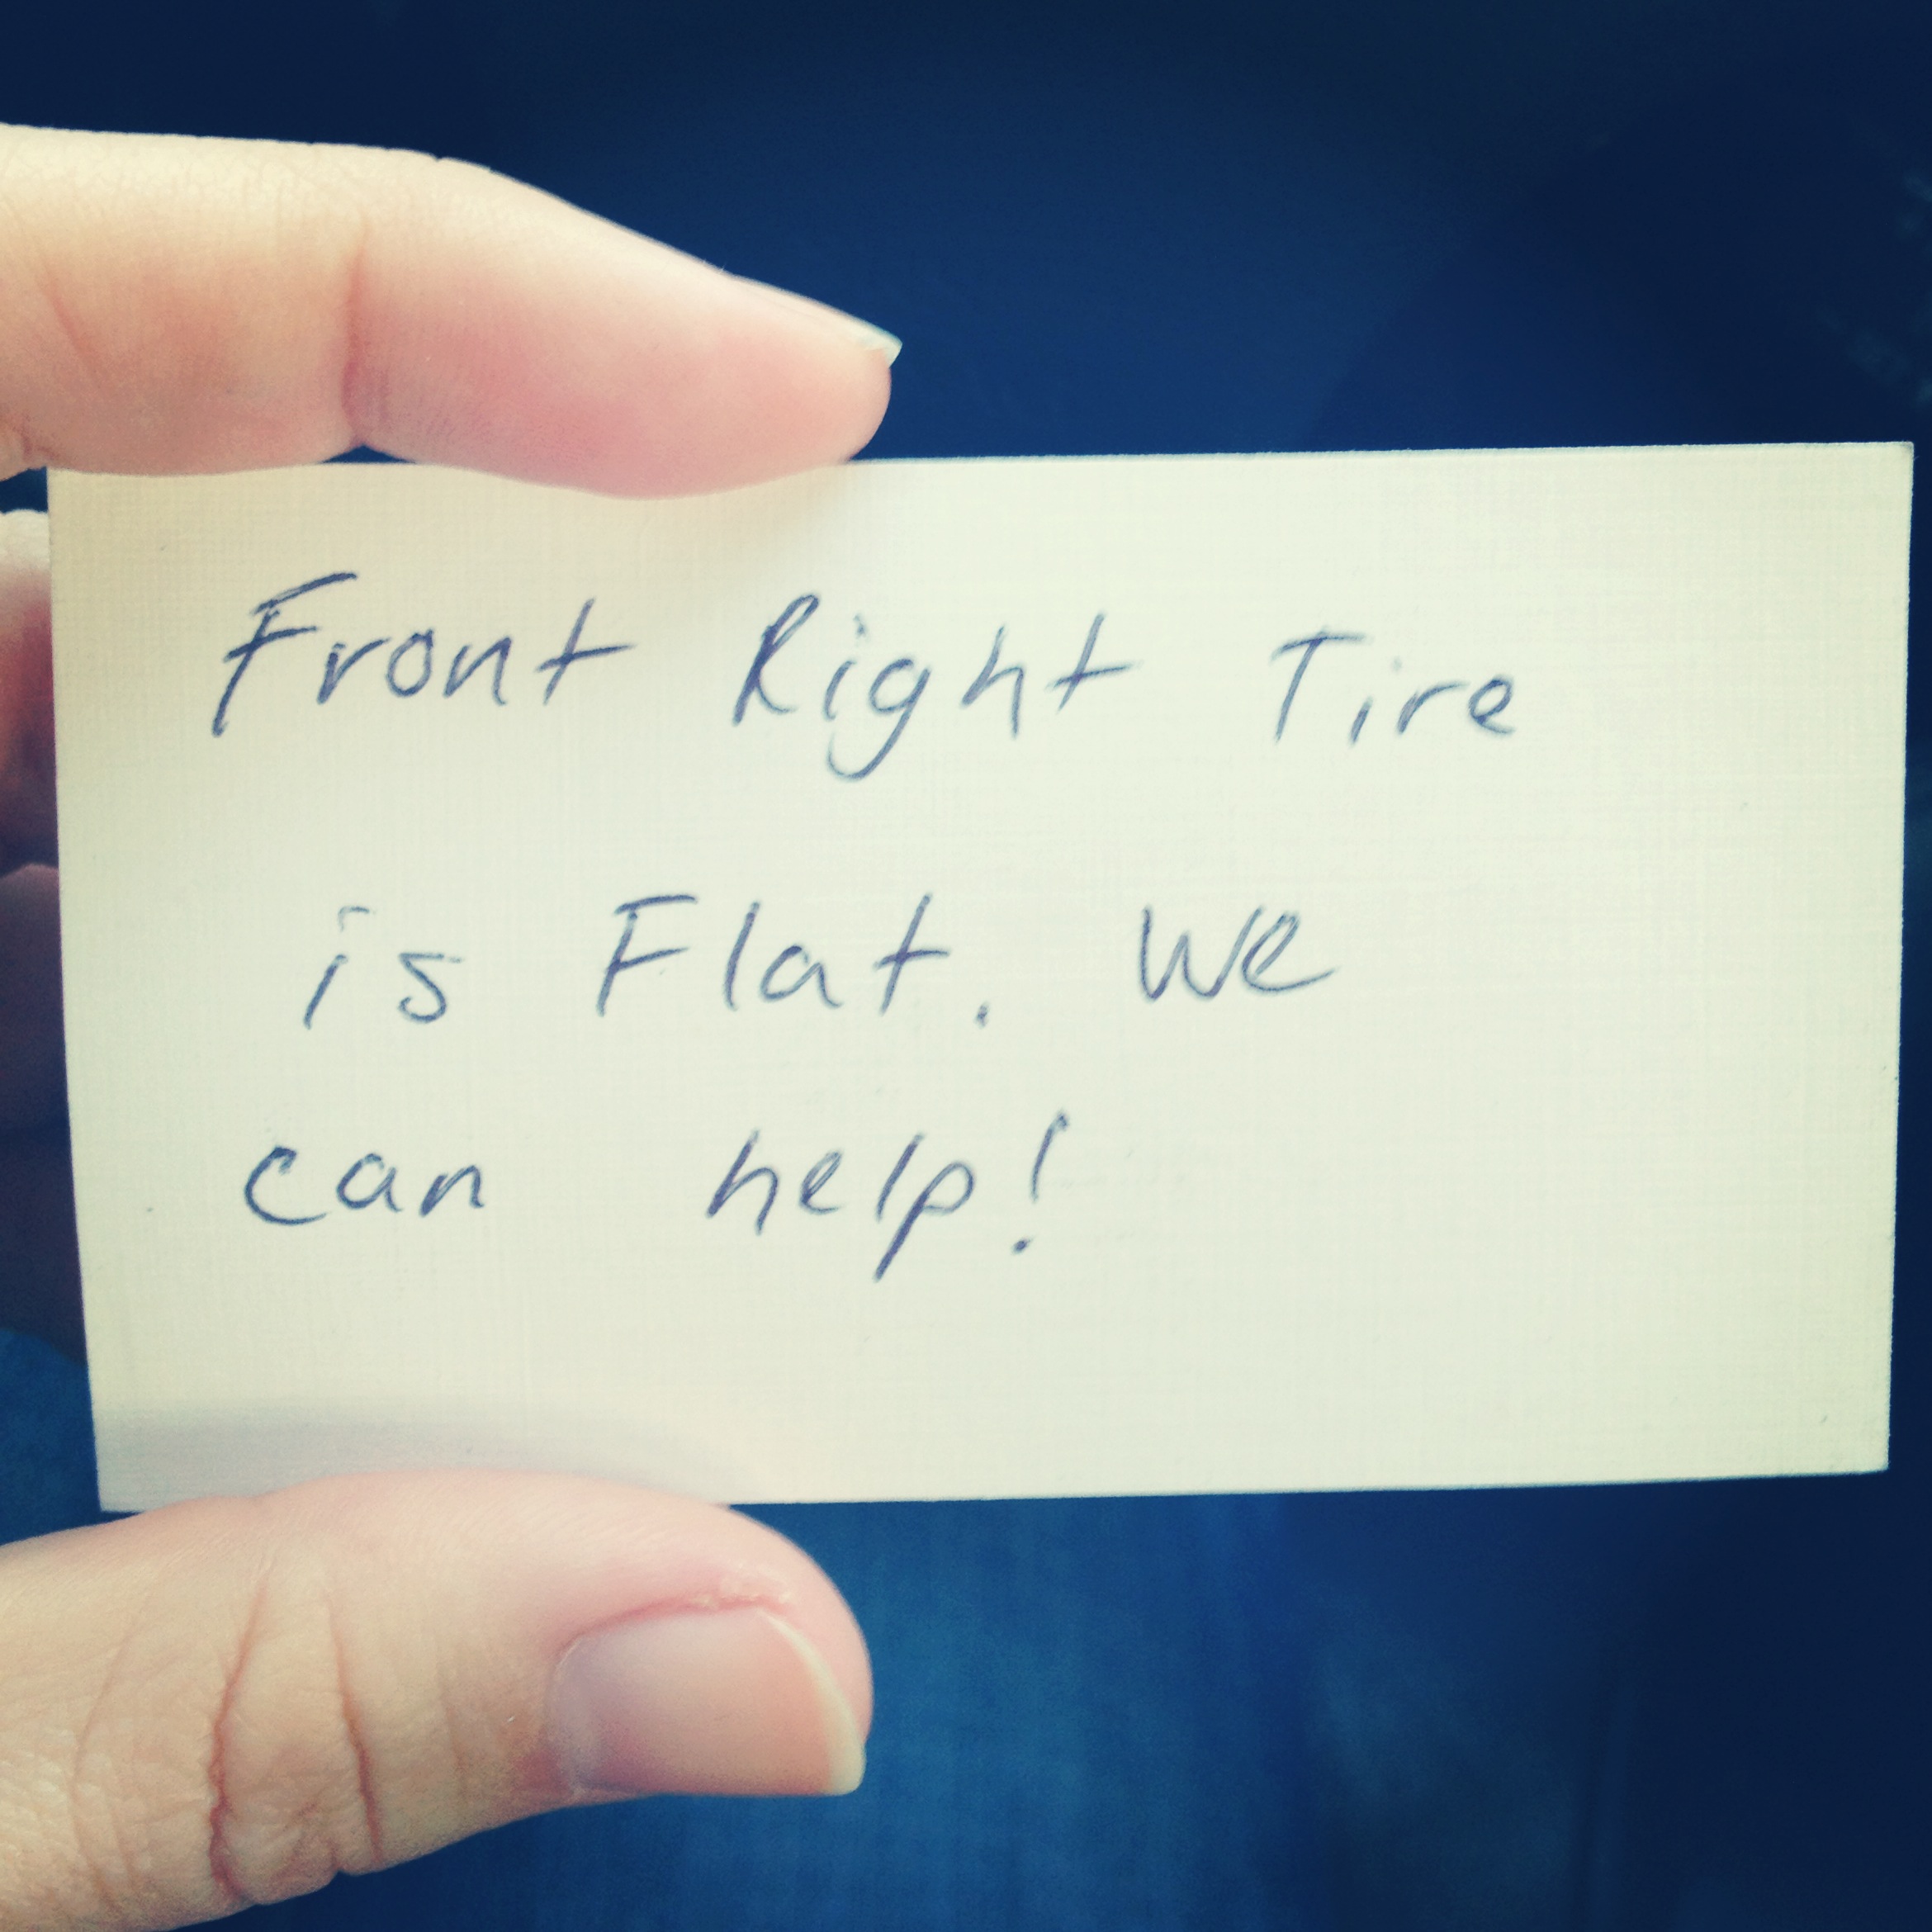 Front Right Tire
is Flat. We
can help!